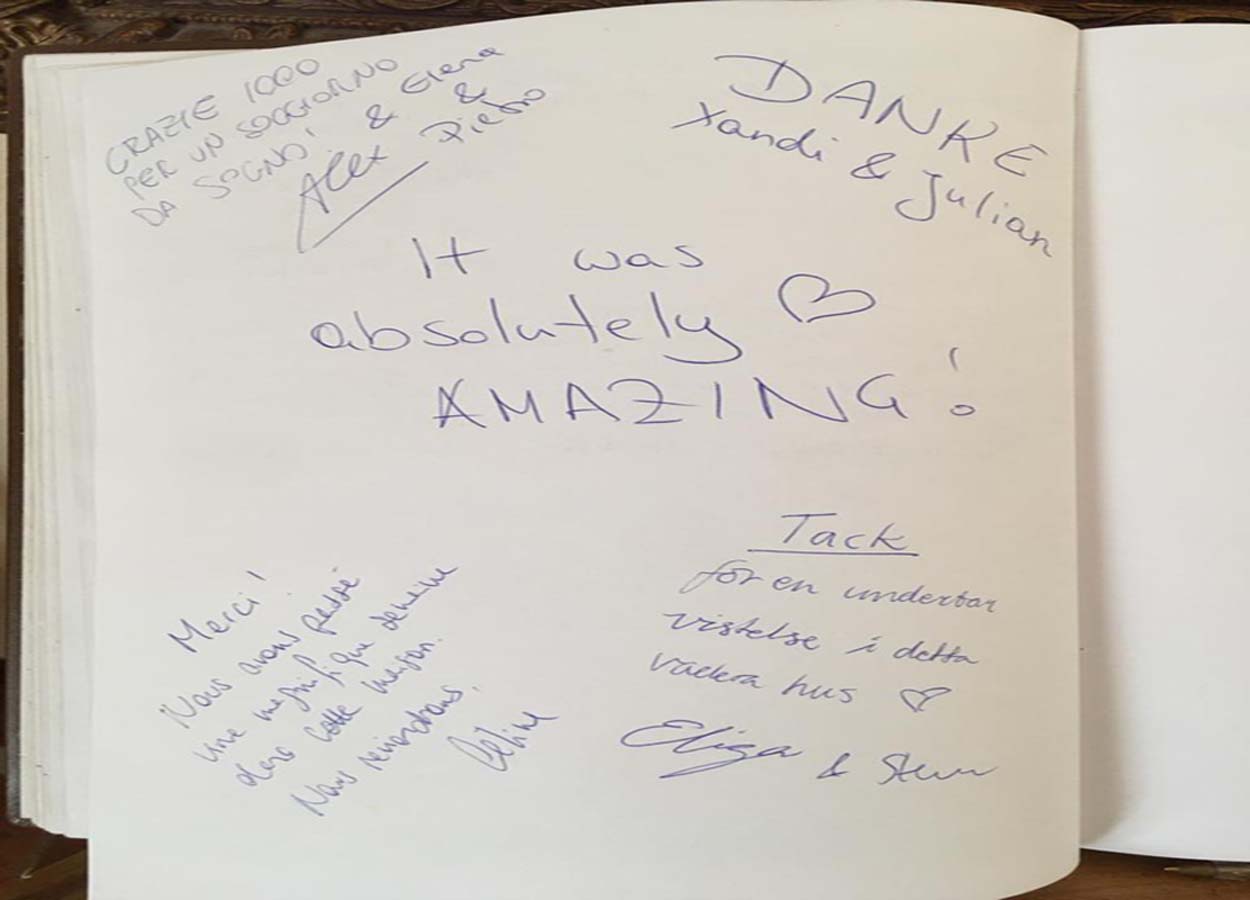 GRAZIE 1000
PER UN SOGGIORNO
DA SOGNO!
Alex & Elena
& Pietro
DANKE
Xandi & Julian
It was
absolutely ♡
AMAZING!
Merci!
Nous avons passé
une magnifique semaine
dans cette maison.
Nous reviendrons.
Céline
Tack
för en underbar
vistelse i detta
vackra hus ♡
Eliza &